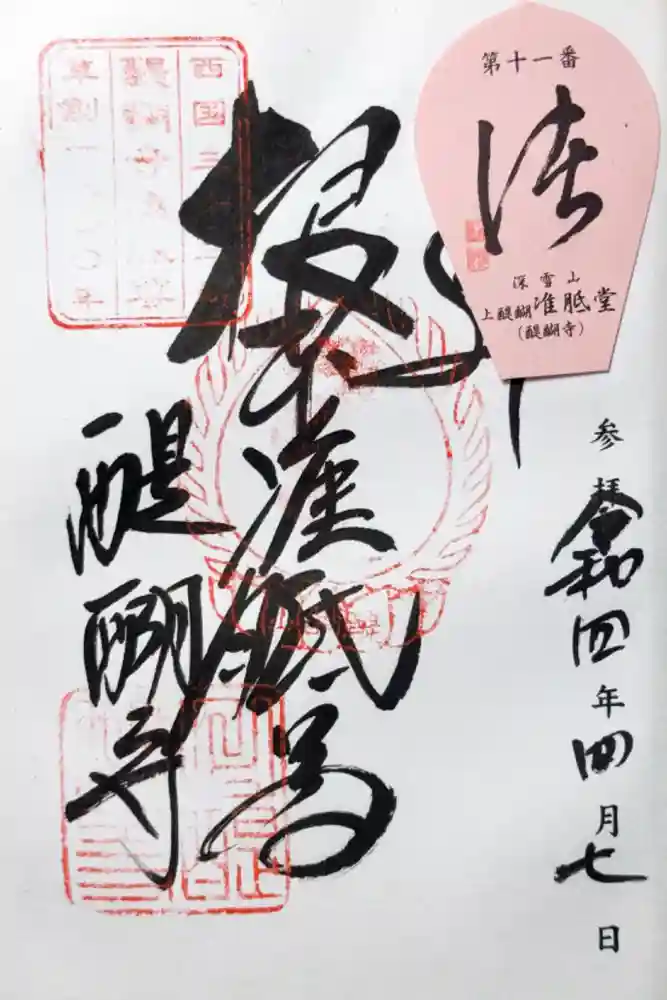 第十一番
深雪山
上醍醐准胝堂
(醍醐寺)
参拝
令和四年四月七日
根本准胝尊
醍醐寺
西国三十三所
草創一三〇〇年